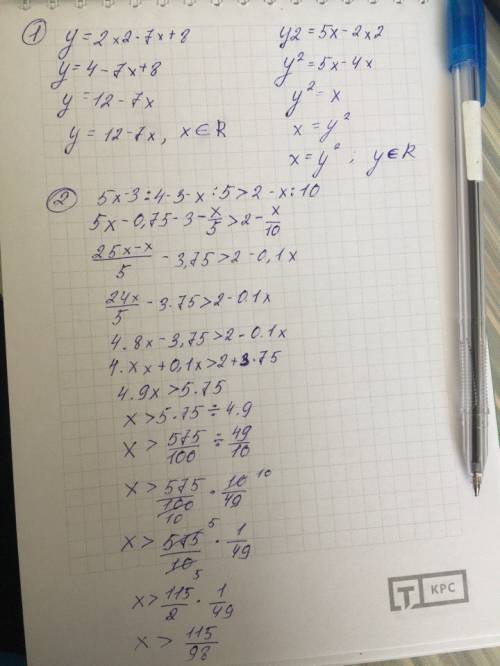 1 y = 2x2 - 7x + 8
y = 4 - 7x + 8
y = 12 - 7x
y = 12 - 7x, x ∈ R
y2 = 5x - 2x2
y² = 5x - 4x
y² = x
x = y²
x = y² ; y ∈ R
2 5x - 3 : 4 - 3 - x : 5 > 2 - x : 10
5x - 0,75 - 3 - x/5 > 2 - x/10
25x-x/5 - 3,75 > 2 - 0,1x
24x/5 - 3.75 > 2 - 0.1x
4.8x - 3,75 > 2 - 0.1x
4.xx + 0,1x > 2 + 3.75
4.9x > 5.75
x > 5.75 ÷ 4.9
x > 575/100 ÷ 49/10
x > 575/100 10 · 10/49 10
x > 575/10 5 5 · 1/49
x > 115/2 · 1/49
x > 115/98
T КРС